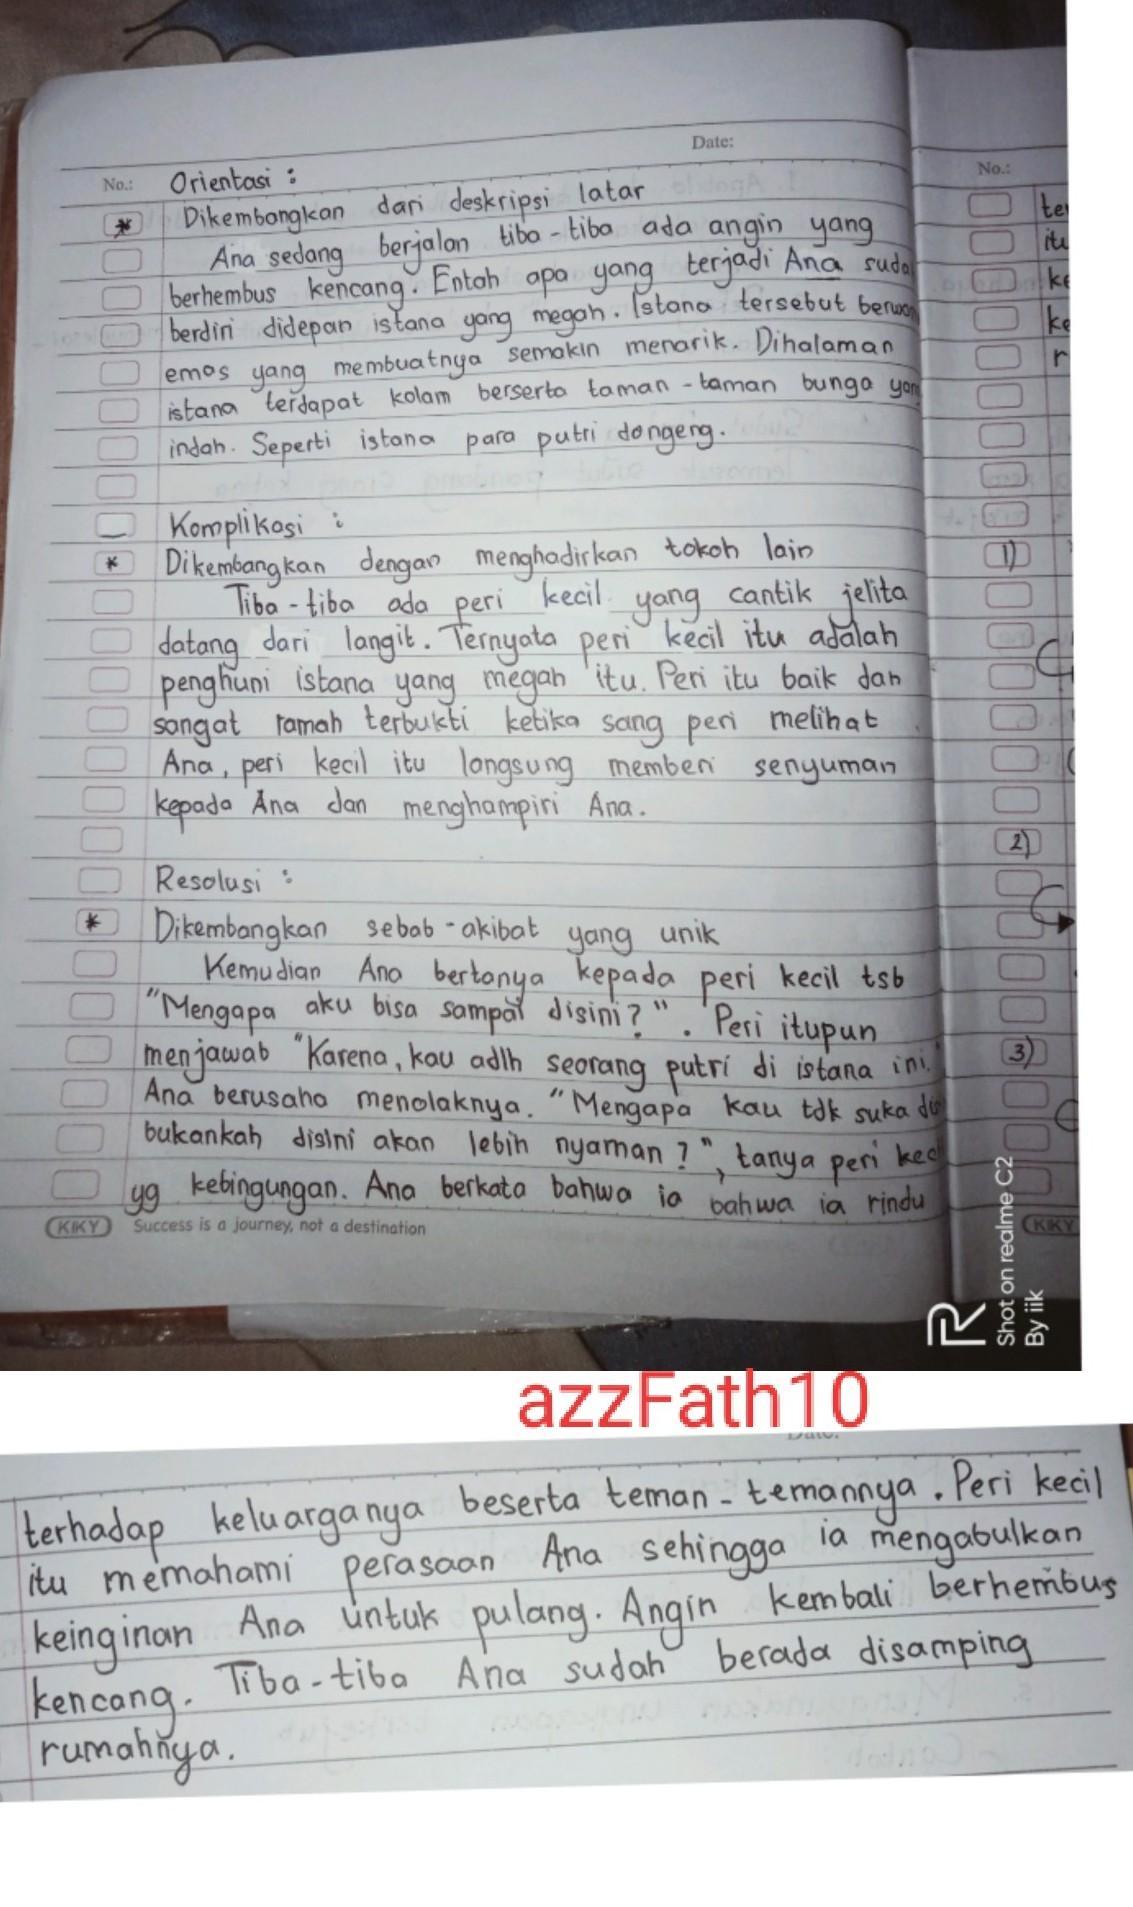 Date:
No.: Orientasi :
* Dikembangkan dari deskripsi latar
Ana sedang berjalan tiba-tiba ada angin yang
berhembus kencang. Entah apa yang terjadi Ana suda
berdiri didepan istana yang megah. Istana tersebut berwar
emas yang membuatnya semakin menarik. Dihalaman
istana terdapat kolam berserta taman-taman bunga yan
indah. Seperti istana para putri dongeng.
Komplikasi :
* Dikembangkan dengan menghadirkan tokoh lain
Tiba-tiba ada peri kecil yang cantik jelita
datang dari langit. Ternyata peri kecil itu adalah
penghuni istana yang megah itu. Peri itu baik dan
sangat ramah terbukti ketika sang peri melihat
Ana, peri kecil itu langsung memberi senyuman
kepada Ana dan menghampiri Ana.
Resolusi :
* Dikembangkan sebab-akibat yang unik
Kemudian Ana bertanya kepada peri kecil tsb
"Mengapa aku bisa sampai disini?". Peri itupun
menjawab "Karena, kau adlh seorang putri di istana ini."
Ana berusaha menolaknya. "Mengapa kau tdk suka di
bukankah disini akan lebih nyaman?", tanya peri kec
yg kebingungan. Ana berkata bahwa ia bahwa ia rindu
KIKY Success is a journey, not a destination
No.:
te
itu
ke
ke
r
1)
2)
3)
KIKY
Shot on realme C2
By iik
azzFath10
terhadap keluarganya beserta teman-temannya. Peri kecil
itu memahami perasaan Ana sehingga ia mengabulkan
keinginan Ana untuk pulang. Angin kembali berhembus
kencang. Tiba-tiba Ana sudah berada disamping
rumahnya.